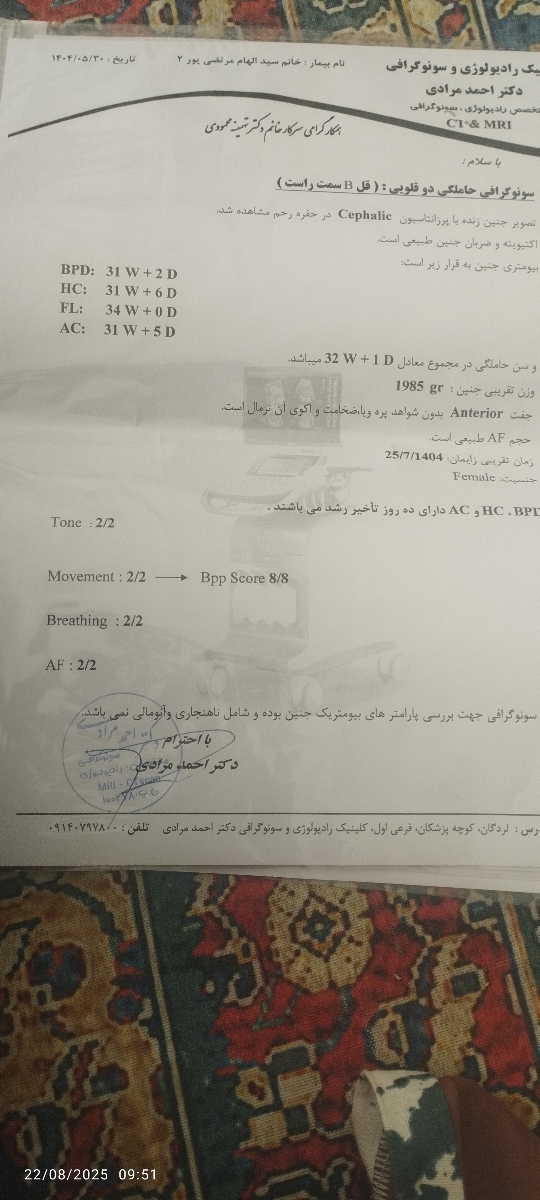 یک رادیولوژی و سونوگرافی
دکتر احمد مرادی
تخصص رادیولوژی ، سونوگرافی
CT & MRI
نام بیمار : خانم سید الهام مرتضی پور ۲
تاریخ : ۱۴۰۴/۰۵/۳۰
همکار گرامی سرکار خانم دکتر تهمینه محمودی
با سلام :
سونوگرافی حاملگی دو قلویی : ( قل B سمت راست )
تصویر جنین زنده با پرزانتاسیون Cephalic در حفره رحم مشاهده شد.
اکتیویته و ضربان جنین طبیعی است.
بیومتری جنین به قرار زیر است:
BPD: 31 W + 2 D
HC: 31 W + 6 D
FL: 34 W + 0 D
AC: 31 W + 5 D
و سن حاملگی در مجموع معادل 32 W + 1 D میباشد.
وزن تقریبی جنین : 1985 gr
جفت Anterior بدون شواهد پره ویا،ضخامت و اکوی آن نرمال است.
حجم AF طبیعی است.
زمان تقریبی زایمان: 25/7/1404
جنسیت: Female
BPD ، HC و AC دارای ده روز تأخیر رشد می باشند .
Tone : 2/2
Movement : 2/2 → Bpp Score 8/8
Breathing : 2/2
AF : 2/2
سونوگرافی جهت بررسی پارامتر های بیومتریک جنین بوده و شامل ناهنجاری وآنومالی نمی باشد.
با احترام
دکتر احمد مرادی
دکتر احمد مرادی
سونوگرافی
رادیولوژی
MRI - CTscan
رس : لردگان، کوچه پزشکان، فرعی اول، کلینیک رادیولوژی و سونوگرافی دکتر احمد مرادی تلفن : ۰۹۱۴۰۷۹۷۸۰۰
22/08/2025 09:51